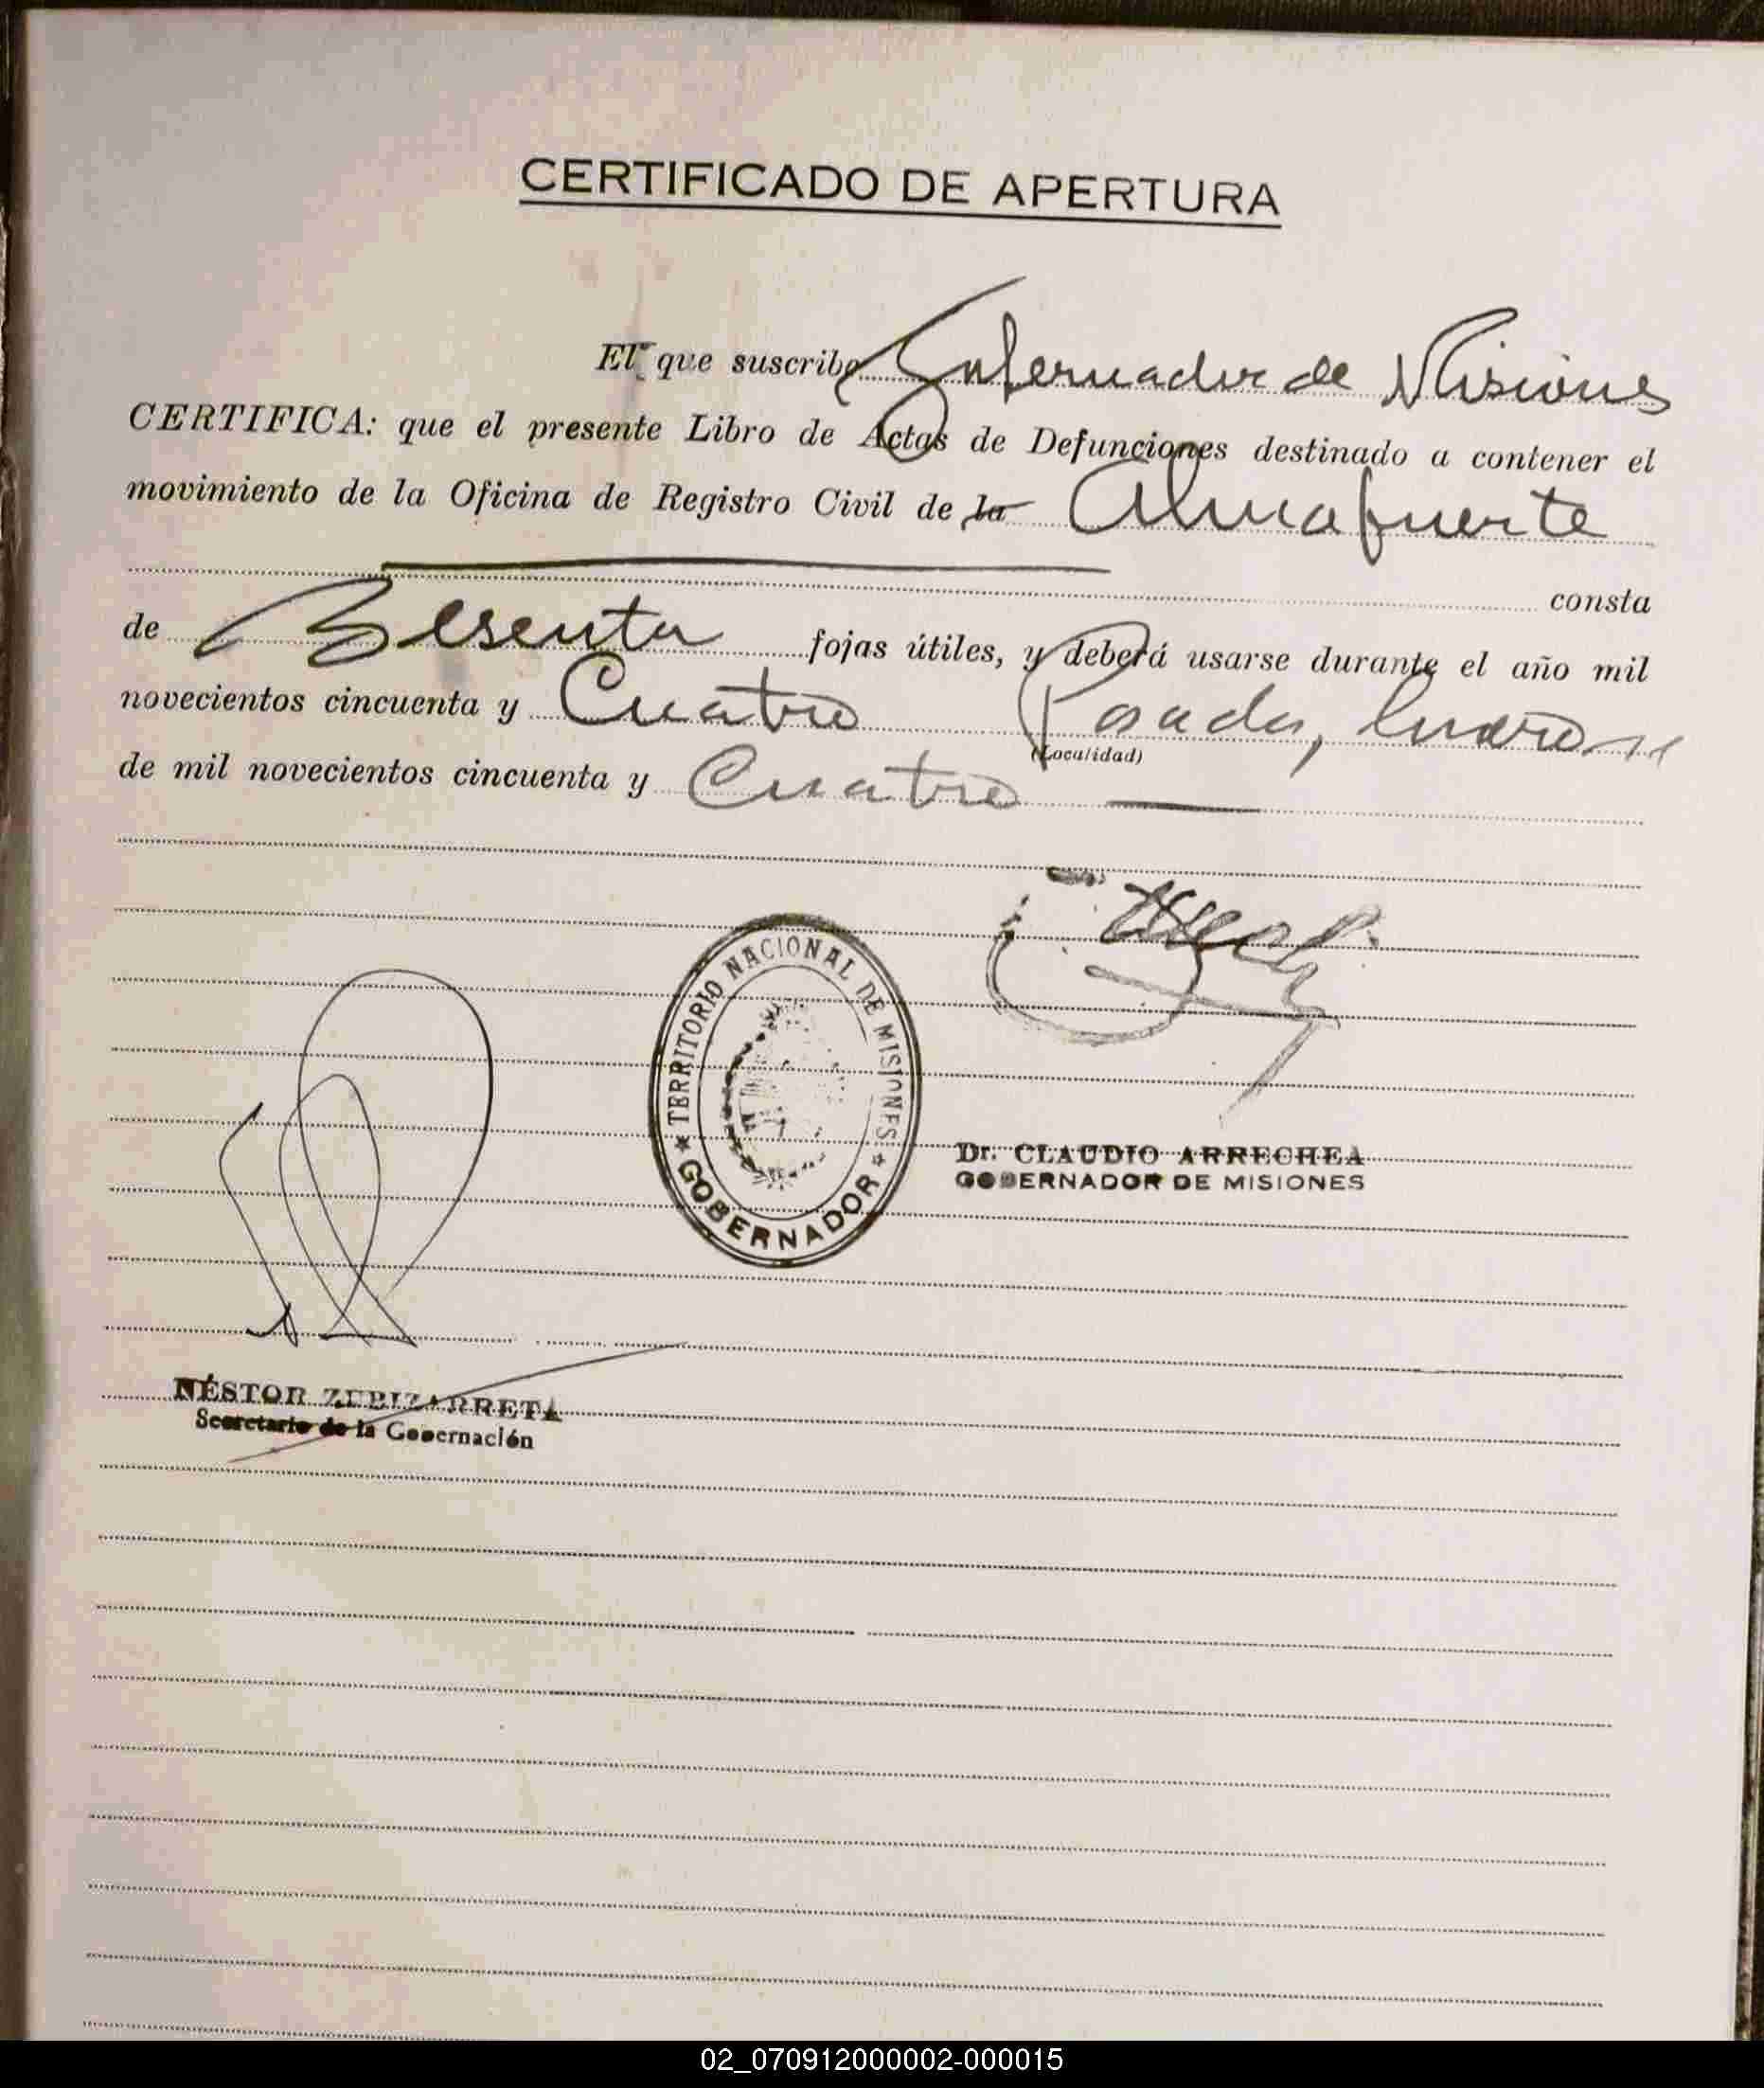 CERTIFICADO DE APERTURA
El que suscribe Gobernador de Misiones
CERTIFICA: que el presente Libro de Actas de Defunciones destinado a contener el
movimiento de la Oficina de Registro Civil de la Almafuerte
consta
de Sesenta fojas útiles, y deberá usarse durante el año mil
novecientos cincuenta y Cuatro Posadas, Enero 11
(Localidad)
de mil novecientos cincuenta y Cuatro
TERRITORIO NACIONAL DE MISIONES
GOBERNADOR
Dr. CLAUDIO ARRECHEA
GOBERNADOR DE MISIONES
NÉSTOR ZUBIZARRETA
Secretario de la Gobernación
02_070912000002-000015